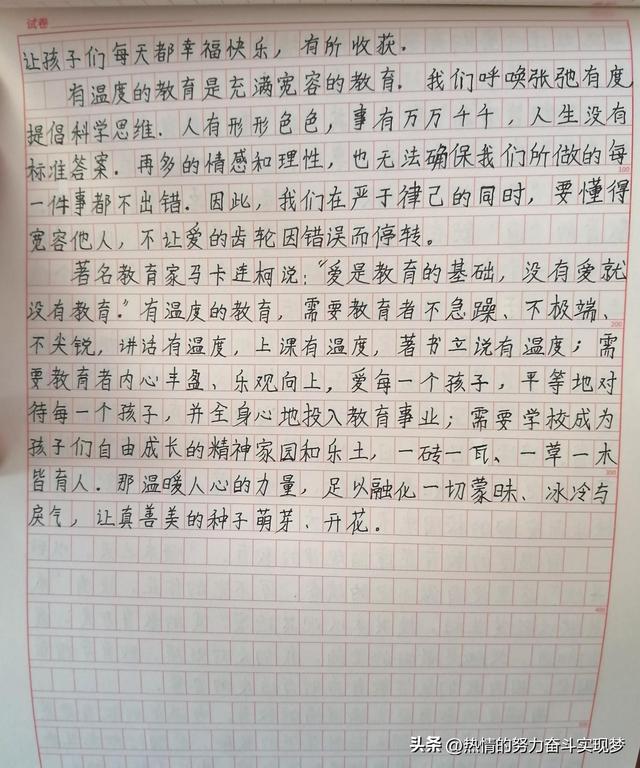 试卷
让孩子们每天都幸福快乐，有所收获.
有温度的教育是充满宽容的教育. 我们呼唤张弛有度,
提倡科学思维. 人有形形色色，事有万万千千，人生没有
标准答案. 再多的情感和理性，也无法确保我们所做的每
100
一件事都不出错. 因此，我们在严于律己的同时，要懂得
宽容他人，不让爱的齿轮因错误而停转。
著名教育家马卡连柯说：“爱是教育的基础，没有爱就
没有教育.”有温度的教育，需要教育者不急躁、不极端、
200
不尖锐，讲话有温度，上课有温度，著书立说有温度；需
要教育者内心丰盈、乐观向上，爱每一个孩子，平等地对
待每一个孩子，并全身心地投入教育事业；需要学校成为
孩子们自由成长的精神家园和乐土，一砖一瓦、一草一木
300
皆育人. 那温暖人心的力量，足以融化一切蒙昧、冰冷与
戾气，让真善美的种子萌芽、开花。
400
头条 @热情的努力奋斗实现梦